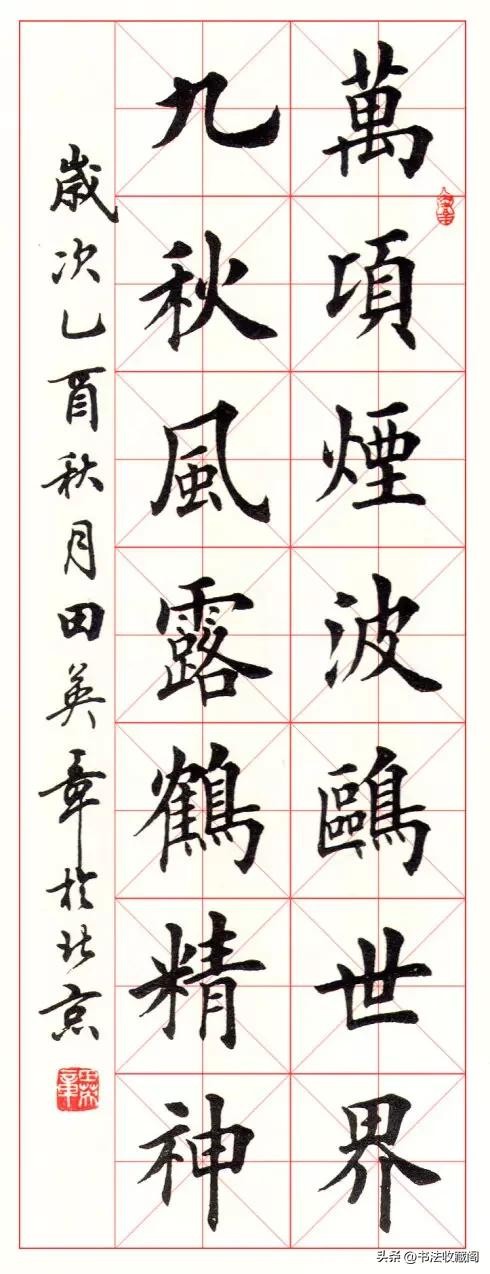 萬頃煙波鷗世界
九秋風露鶴精神
歲次乙酉秋月田英章於北京
田英章
头条 @书法收藏阁